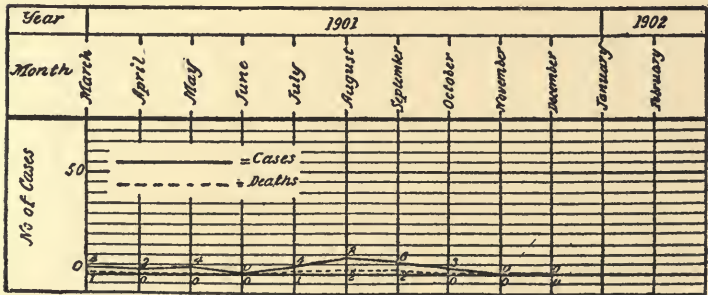 Year 1901 1902
Month March April May June July August September October November December January February
No of Cases
50
= Cases
= Deaths
0
4 2 4 0 4 8 6 3 0 0
1 0 0 0 1 2 2 0 0 0